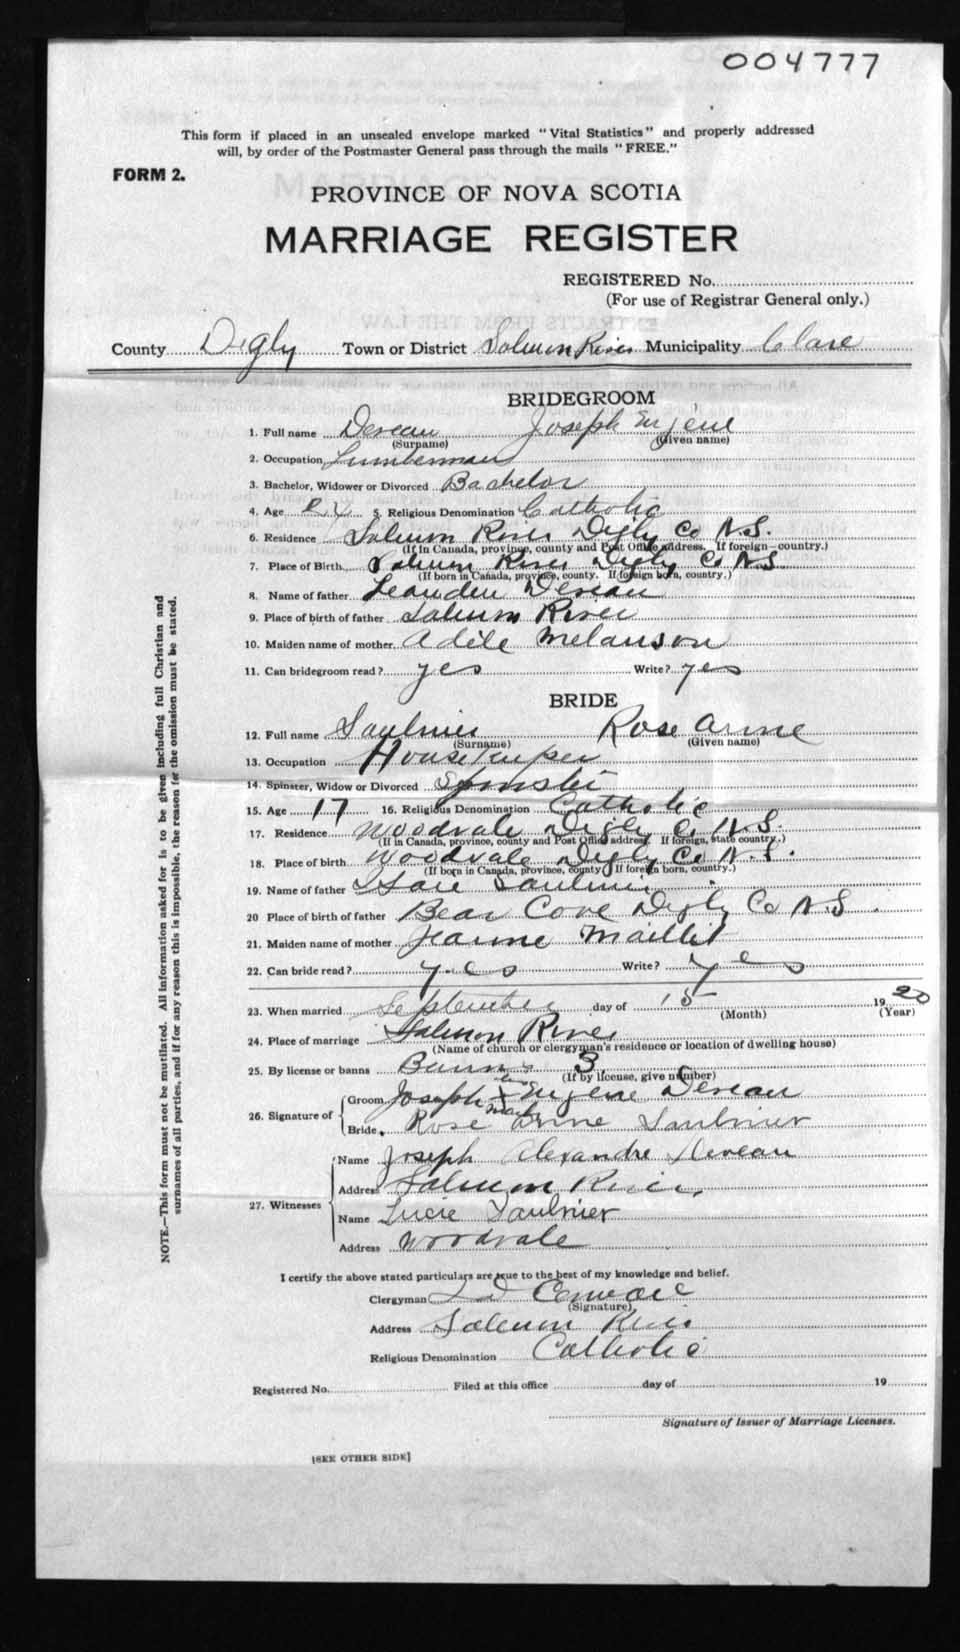 004777
This form if placed in an unsealed envelope marked "Vital Statistics" and properly addressed
will, by order of the Postmaster General pass through the mails "FREE."
FORM 2.
PROVINCE OF NOVA SCOTIA
MARRIAGE REGISTER
REGISTERED No.
(For use of Registrar General only.)
County Digby Town or District Salmon River Municipality Clare
BRIDEGROOM
1. Full name Deveau Joseph Eugène
(Surname) (Given name)
2. Occupation Lumberman
3. Bachelor, Widower or Divorced Bachelor
4. Age 5. Religious Denomination Catholic
6. Residence Salmon River Digby Co N.S.
(If in Canada, province, county and Post Office address. If foreign—country.)
7. Place of Birth Salmon River Digby Co N.S.
(If born in Canada, province, county. If foreign born, country.)
8. Name of father Leander Deveau
9. Place of birth of father Salmon River
10. Maiden name of mother Adèle Melanson
11. Can bridegroom read? yes Write? yes
BRIDE
12. Full name Saulnier Rose Anne
(Surname) (Given name)
13. Occupation Housekeeper
14. Spinster, Widow or Divorced Spinster
15. Age 17 16. Religious Denomination Catholic
17. Residence Woodvale Digby Co N.S.
(If in Canada, province, county and Post Office address. If foreign, state country.)
18. Place of birth Woodvale Digby Co N.S.
(If born in Canada, province, county If foreign born, country.)
19. Name of father Saulnier
20 Place of birth of father Bear Cove Digby Co N.S.
21. Maiden name of mother Jeanne Maillet
22. Can bride read? yes Write? yes
23. When married September day of 15 1920
(Month) (Year)
24. Place of marriage Salmon River
(Name of church or clergyman's residence or location of dwelling house)
25. By license or banns Banns 3
(If by license, give number)
26. Signature of
Groom Joseph his x mark Eugène Deveau
Bride. Rose Anne Saulnier
27. Witnesses
Name Joseph Alexandre Deveau
Address Salmon River
Name Lucie Saulnier
Address Woodvale
I certify the above stated particulars are true to the best of my knowledge and belief.
Clergyman
(Signature)
Address Salmon River
Religious Denomination Catholic
Registered No. Filed at this office day of 19
Signature of Issuer of Marriage Licenses.
[SEE OTHER SIDE]
NOTE.—This form must not be mutilated. All information asked for is to be given including full Christian and
surnames of all parties, and if for any reason this is impossible, the reason for the omission must be stated.